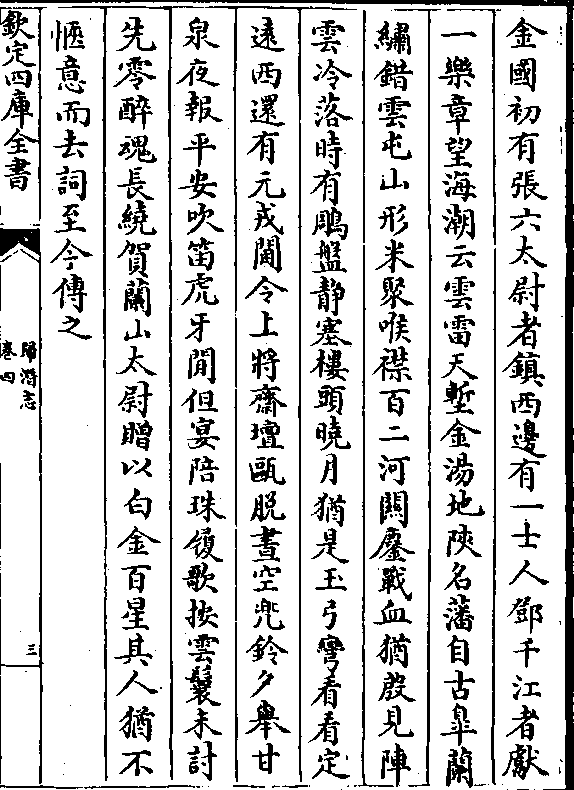 金國初有張六太尉者鎮西邊有一士人鄧千江者獻
一樂章望海潮云雲雷天塹金湯地陝名藩自古臯蘭
繡錯雲屯山形米聚喉襟百二河關鏖戰血猶殷見陣
雲冷落時有鵰盤静塞樓頭曉月猶是玉弓彎看看定
逺西還有元戎閫令上將齋壇甌脱晝空兠鈴夕舉甘
泉夜報平安吹笛虎牙閒但宴陪珠履歌按雲鬟未討
先零醉魂長繞賀蘭山太尉贈以白金百星其人猶不
愜意而去詞至今傳之
欽定四庫全書
歸潛志
卷四
三